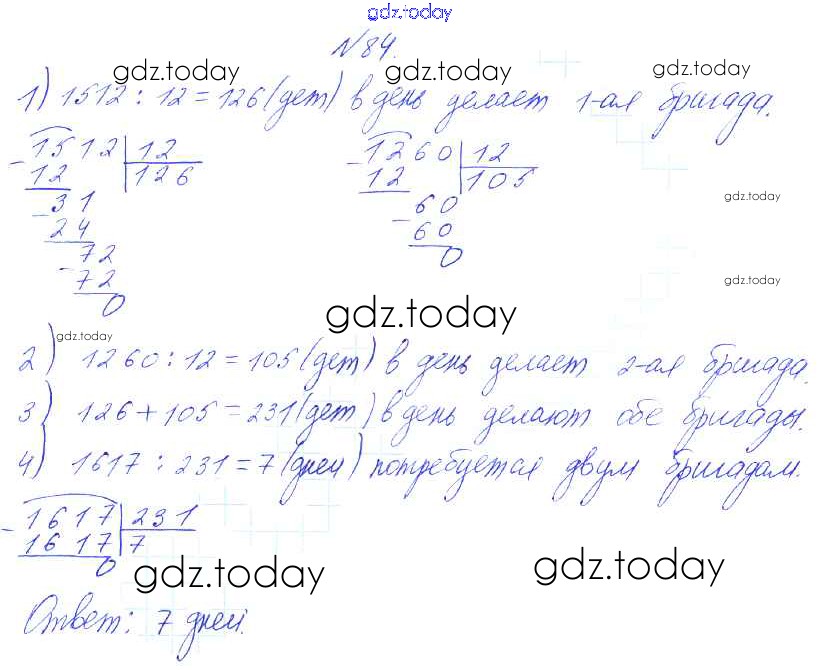 gdz.today
№84.
gdz.today gdz.today gdz.today
1) 1512 : 12 = 126 (дет) в день делает 1-ая бригада.
- 1512 | 12
12 | 126
- 31
24
- 72
72
0
- 1260 | 12
12 | 105
- 60
60
0
gdz.today
gdz.today
gdz.today
gdz.today
2) 1260 : 12 = 105 (дет) в день делает 2-ая бригада.
3) 126 + 105 = 231 (дет) в день делают обе бригады.
4) 1617 : 231 = 7 (дней) потребуется двум бригадам.
- 1617 | 231
1617 | 7
0
gdz.today gdz.today
Ответ: 7 дней.